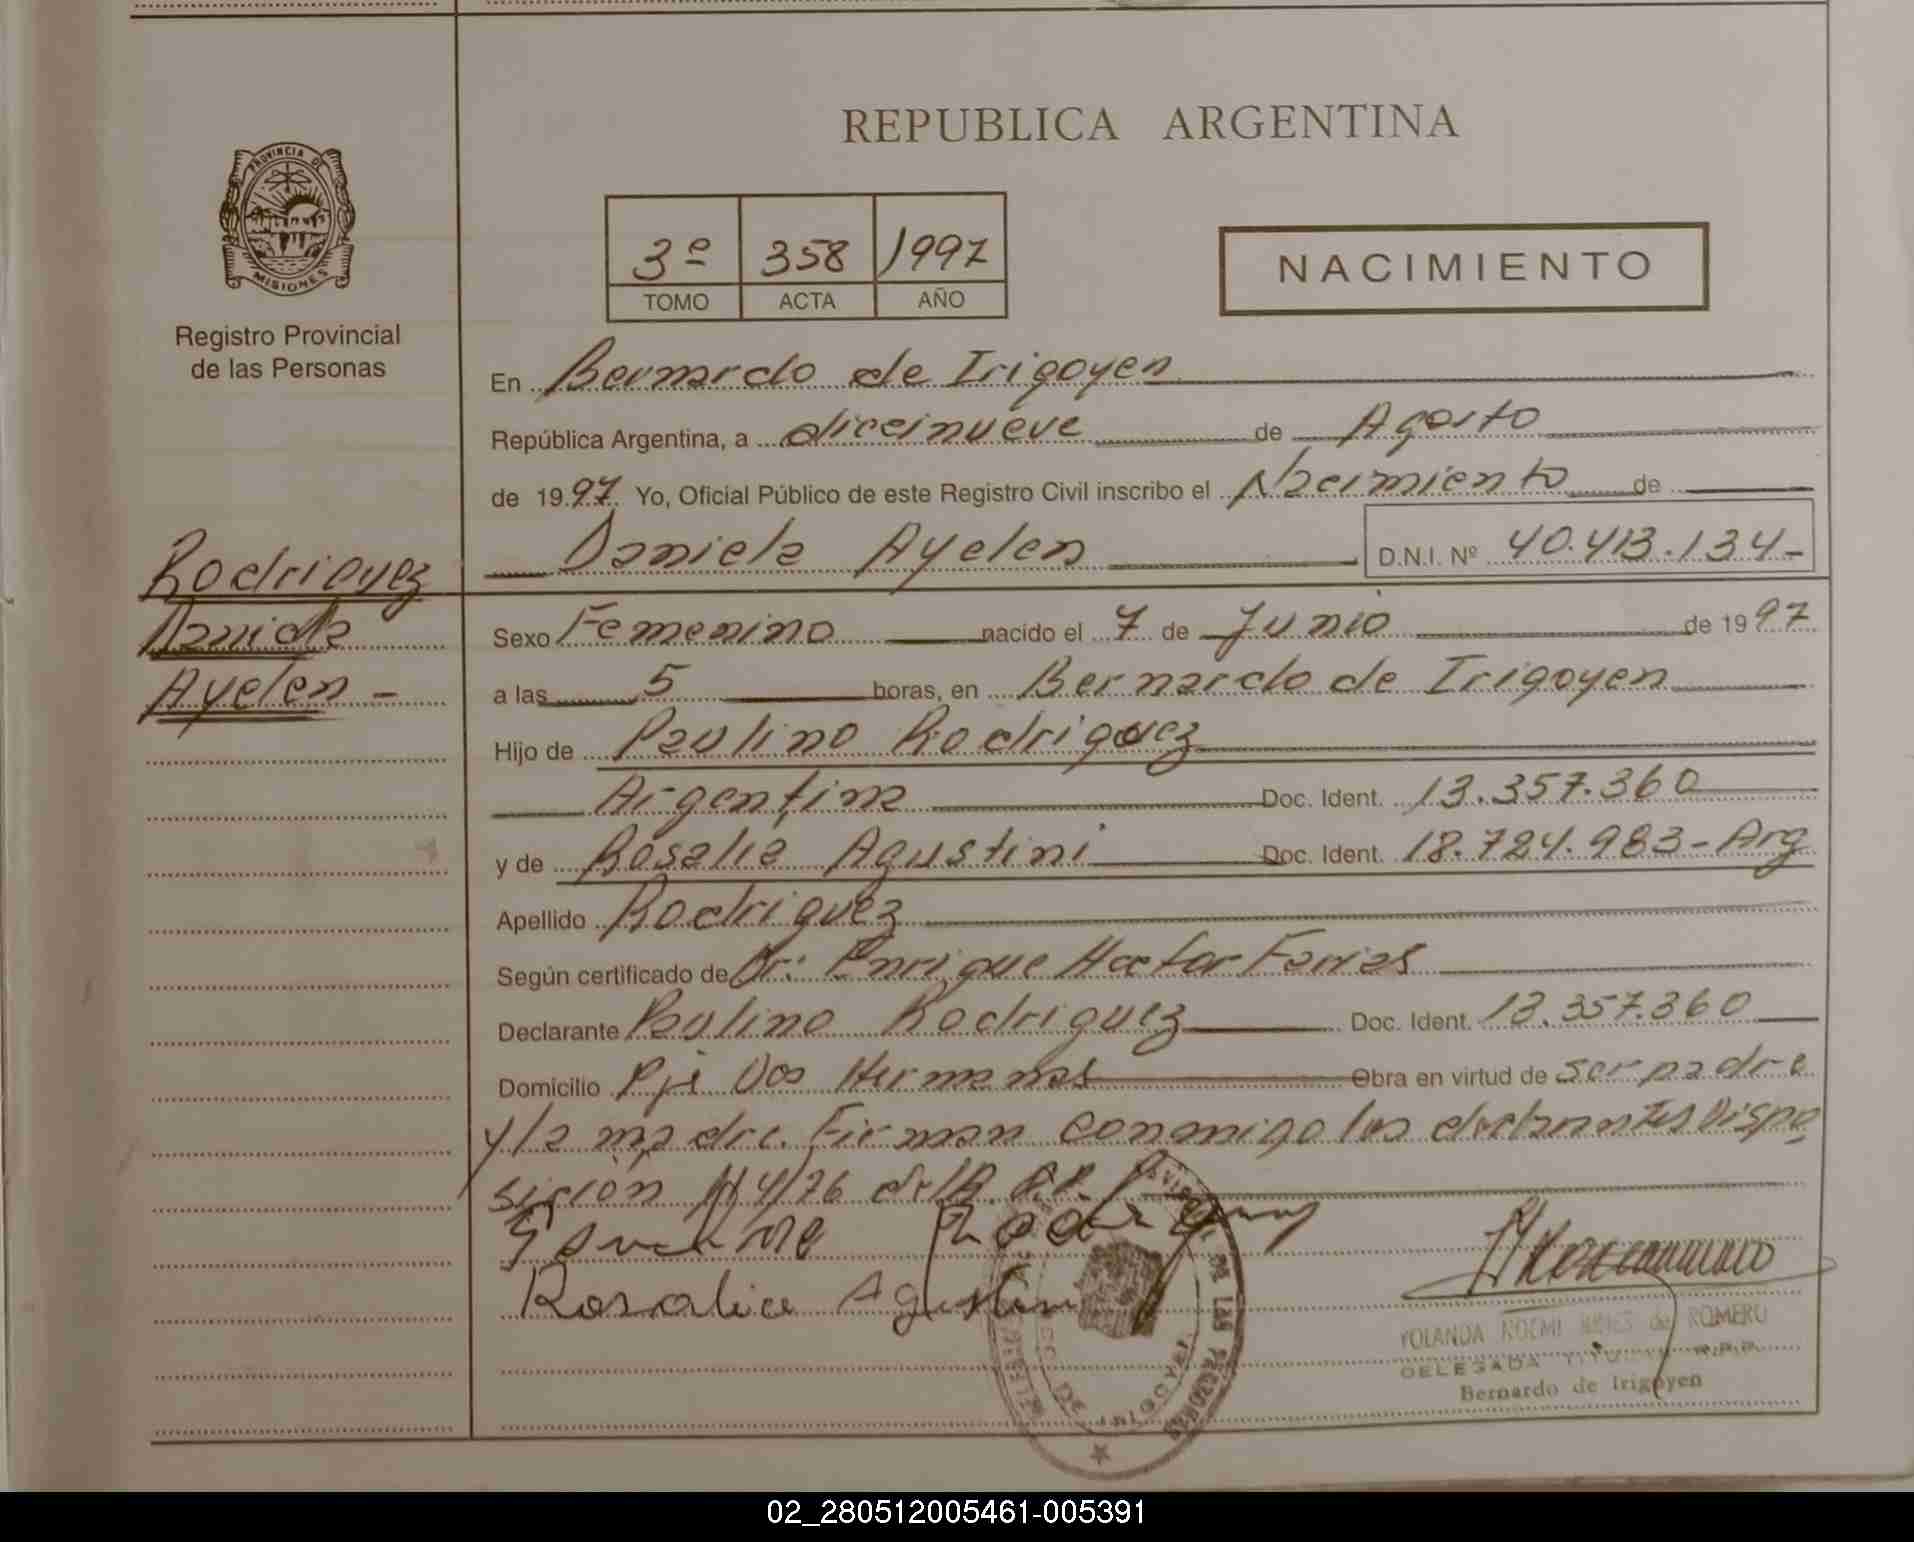 REPUBLICA ARGENTINA
PROVINCIA DE
MISIONES
Registro Provincial
de las Personas
3º 358 1997
TOMO ACTA AÑO
NACIMIENTO
En Bernardo de Irigoyen
República Argentina, a diecinueve de Agosto
de 1997 Yo, Oficial Público de este Registro Civil inscribo el Nacimiento de
Daniela Ayelen D.N.I. Nº 40.413.134-
Rodriguez
Daniela
Ayelen -
Sexo Femenino nacido el 7 de Junio de 1997
a las 5 horas, en Bernardo de Irigoyen
Hijo de Paulino Rodriguez
Argentina Doc. Ident. 13.357.360
y de Rosalia Agustini Doc. Ident. 18.724.983-Arg
Apellido Rodriguez
Según certificado de Dr: Enrique Hector Farias
Declarante Paulino Rodriguez Doc. Ident. 13.357.360
Domicilio Pje Dos Hermanas Obra en virtud de ser padre
y la madre. Firman conmigo los declarantes Dispo
sición Nº 4/76 de la
Rosalia Agustini
DE LAS PERSONAS
YOLANDA NOEMI de ROMERO
DELEGADA TITULAR R.P.P.
Bernardo de Irigoyen
02_280512005461-005391